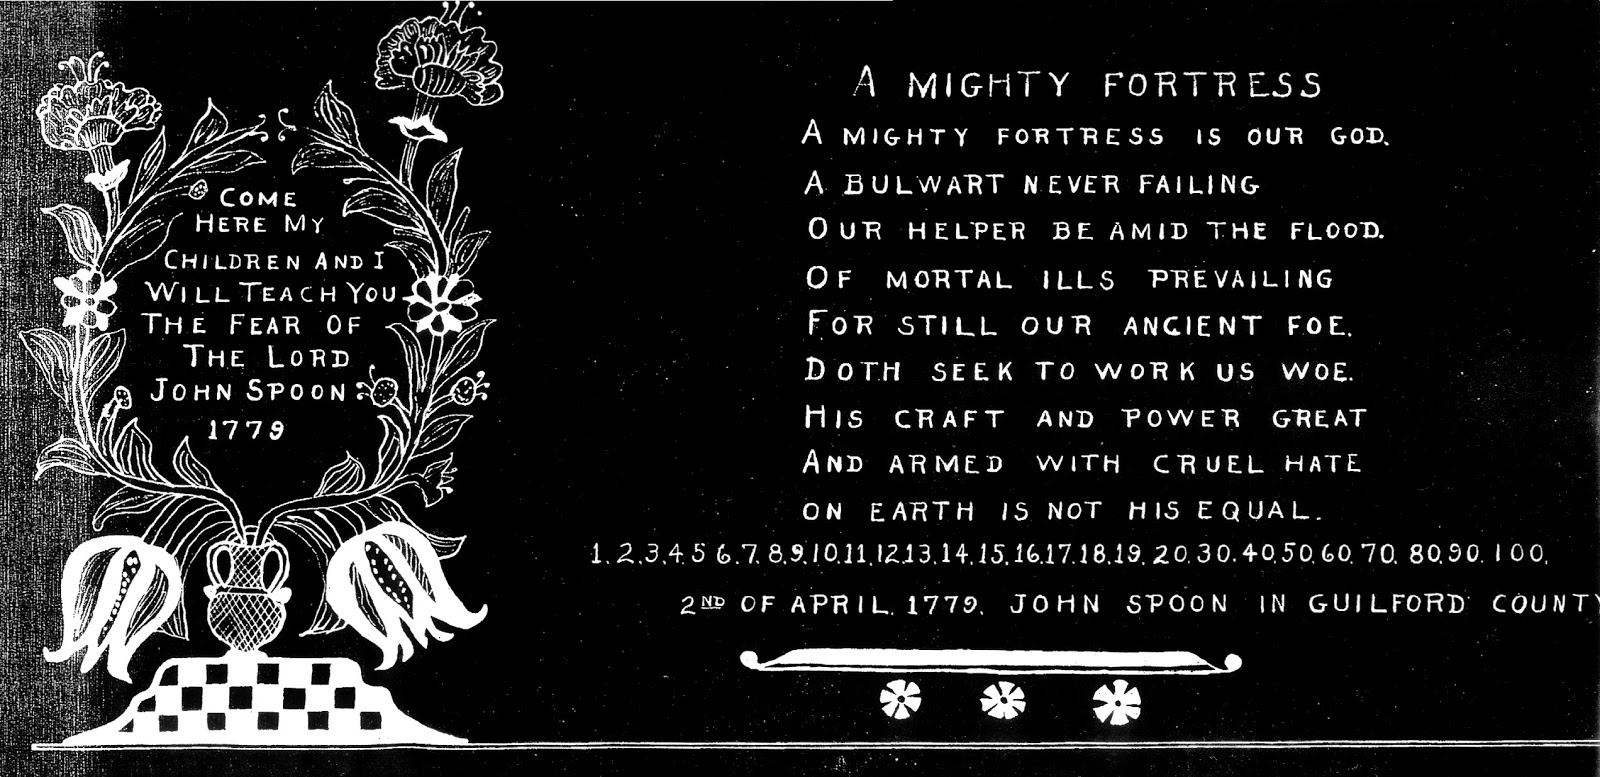 COME
HERE MY
CHILDREN AND I
WILL TEACH YOU
THE FEAR OF
THE LORD
JOHN SPOON
1779
A MIGHTY FORTRESS
A MIGHTY FORTRESS IS OUR GOD.
A BULWART NEVER FAILING
OUR HELPER BE AMID THE FLOOD.
OF MORTAL ILLS PREVAILING
FOR STILL OUR ANCIENT FOE.
DOTH SEEK TO WORK US WOE.
HIS CRAFT AND POWER GREAT
AND ARMED WITH CRUEL HATE
ON EARTH IS NOT HIS EQUAL.
1.2.3.4.5 6.7.8.9.10.11.12.13.14.15.16.17.18.19.20.30.40.50.60.70.80.90.100.
2ND OF APRIL. 1779. JOHN SPOON IN GUILFORD COUNTY